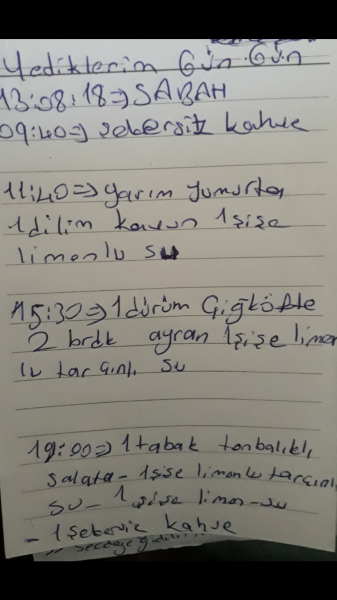 Yediklerim Gün Gün
13:08:18⇒SABAH
09:40⇒ şekersiz kahve
11:40⇒ yarım yumurta
1 dilim kavun 1 şişe
limonlu su
15:30⇒ 1 dürüm Çiğköfte
2 brdk ayran 1 şişe limon
lu tarçınlı su
19:00⇒ 1 tabak tonbalıklı
salata - 1 şişe limonlu tarçınlı
su - 1 şişe limon-su
- 1 şekersiz kahve